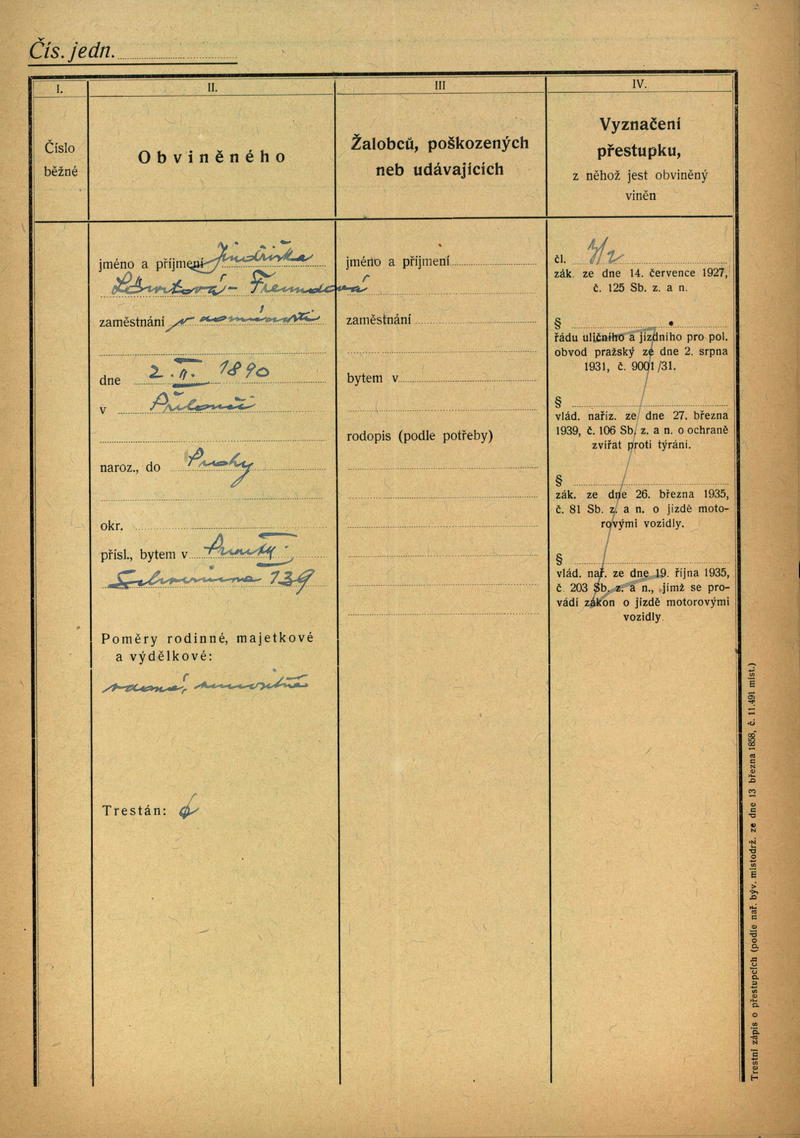 Čís. jedn.
I.
Číslo
běžné
II.
Obviněného
III
Žalobců, poškozených
neb udávajících
IV.
Vyznačení
přestupku,
z něhož jest obviněný
viněn
jméno a příjmení
zaměstnání
dne 2. II. 1890
v
naroz., do Prahy
okr.
přísl., bytem v
139
Poměry rodinné, majetkové
a výdělkové:
Trestán:
jméno a příjmení
zaměstnání
bytem v
rodopis (podle potřeby)
čl. 1/2
zák. ze dne 14. července 1927,
č. 125 Sb. z. a n.
§
řádu uličního a jízdního pro pol.
obvod pražský ze dne 2. srpna
1931, č. 9001/31.
§
vlád. naříz. ze dne 27. března
1939, č. 106 Sb. z. a n. o ochraně
zvířat proti týrání.
§
zák. ze dne 26. března 1935,
č. 81 Sb. z. a n. o jízdě moto-
rovými vozidly.
§
vlád. nař. ze dne 19. října 1935,
č. 203 Sb. z. a n., jímž se pro-
vádí zákon o jízdě motorovými
vozidly
Trestní zápis o přestupcích (podle nař. býv. místodrž. ze dne 13 března 1858, č. 11.491 míst.)